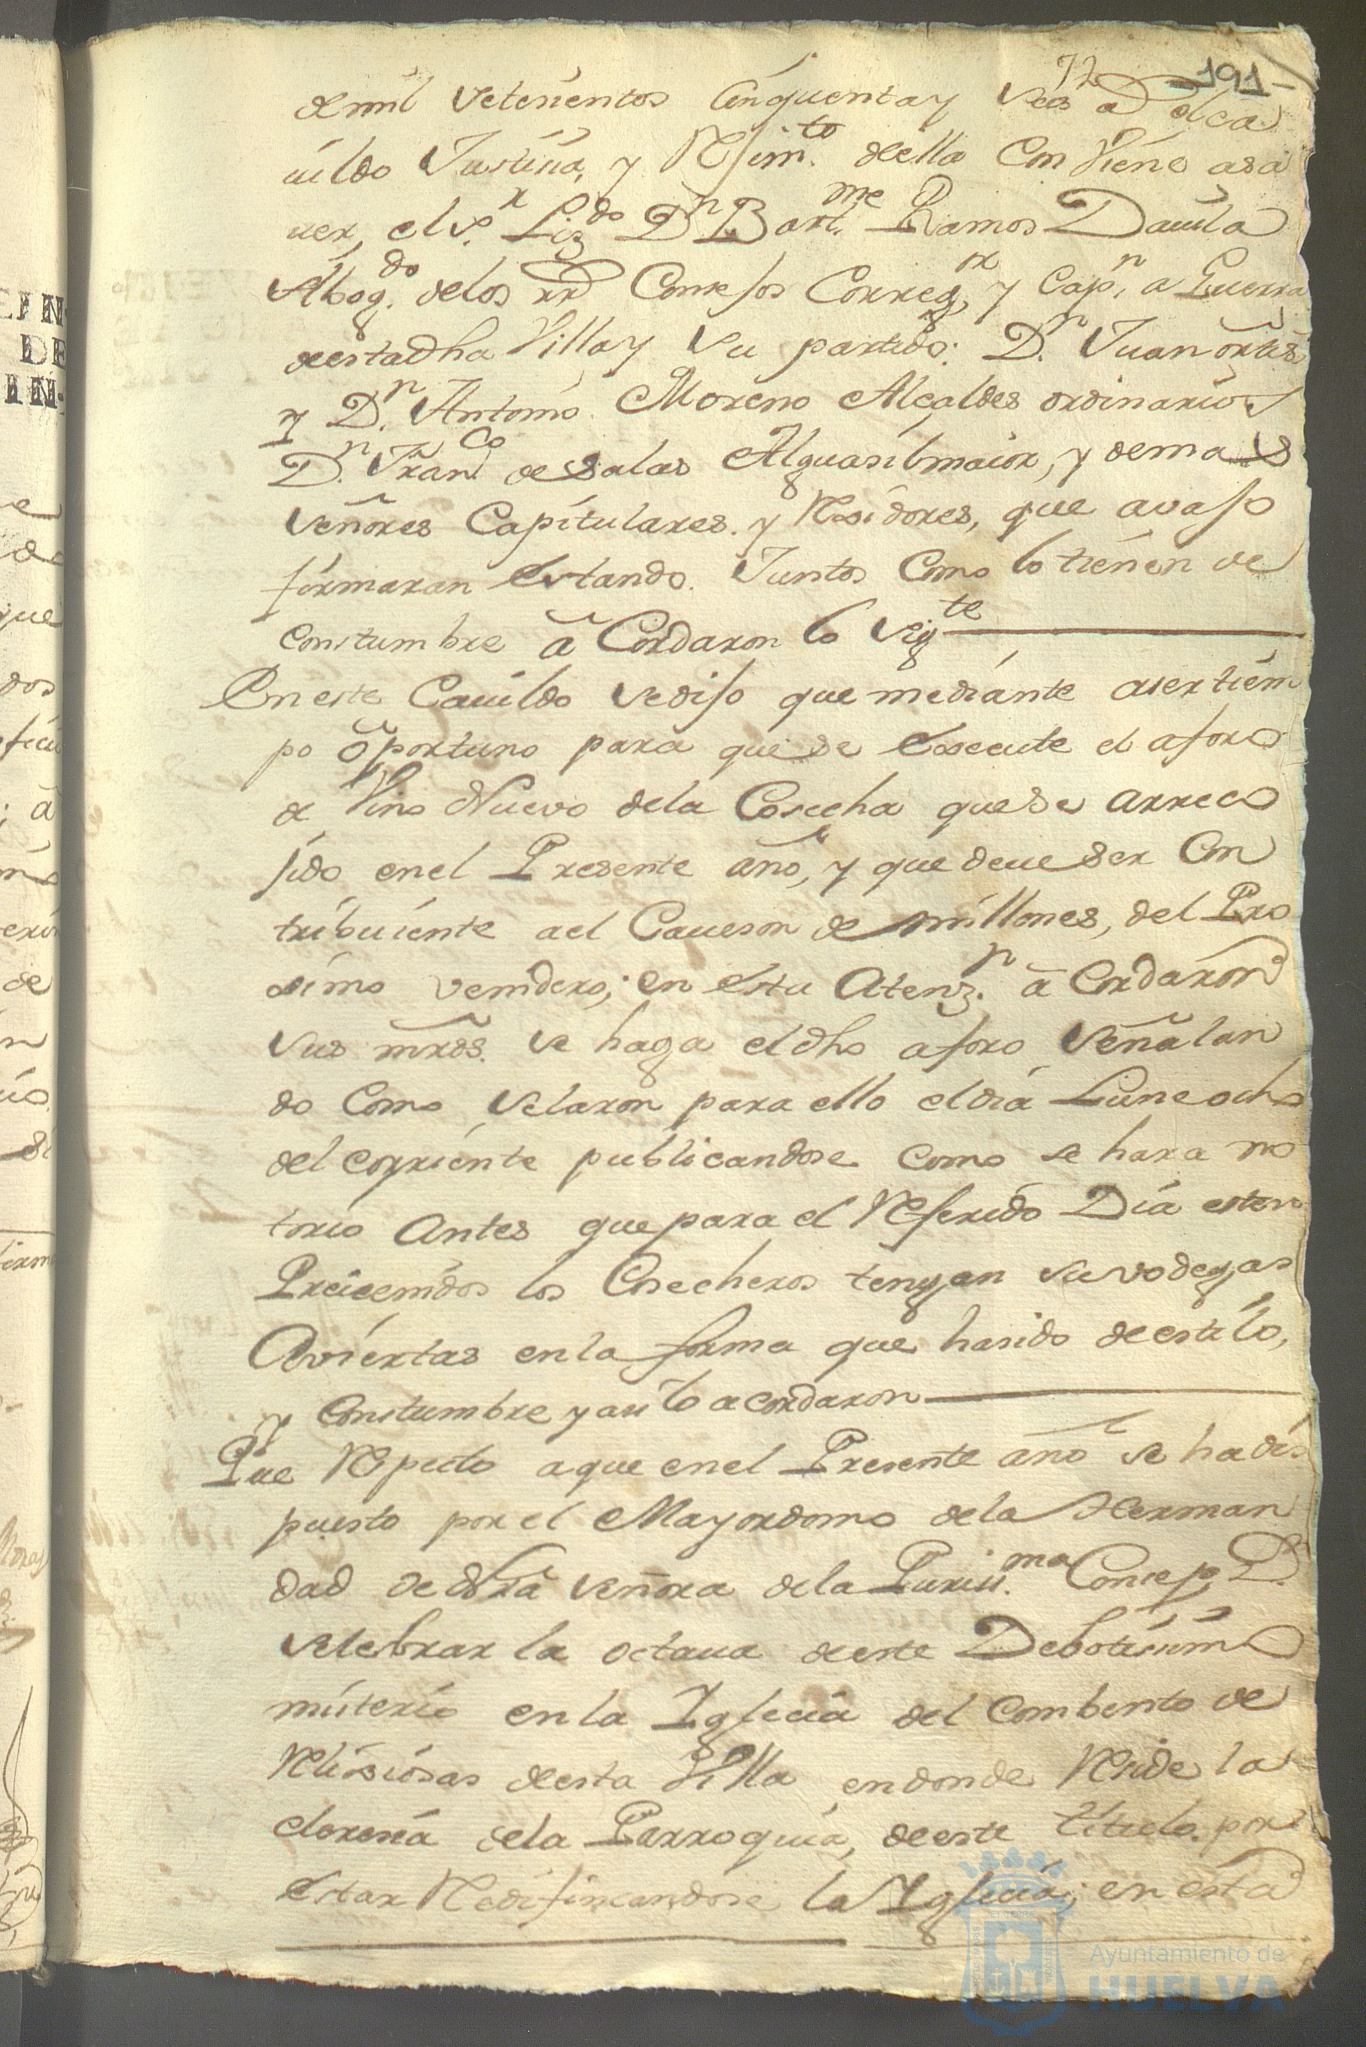 72 191
de mil setesientos Cinquenta y seis a el ca
uildo Justisia, y Rejimto. de ella Combiene a sa
uer, el Sr. Lizdo. Dn. Bartme. Ramos Dauila
Abogdo. de los rrs Consejos Corregr, y Capn. a Guerra
de esta dha Villa y su partido. Dn. Juan ortis
y Dn. Antonio Moreno Alcaldes ordinarios
Dn. Franco. de Salas Alguasil maior, y demas
señores Capitulares y Rexidores, que avajo
firmaran estando Juntos Como lo tienen de
Constumbre aCordaron lo sigte
En este Cauildo se dijo que mediante a ser tiem
po oportuno para que se execute el aforo
de Vino Nuevo de la Cosecha que se a rreco
jido en el Presente año, y que deue ser Con
tribuiente a el Caueson de millones, del Pro
simo venidero; en esta Atenzn. aCordaron
sus mrds. se haga el dho aforo señalan
do Como selaron para ello el dia Lune ocho
del corriente publicandose como se hara no
torio Antes que para el Referido Dia esten
Preuenidos los Cosecheros tengan su vodegas
Aviertas en la forma que ha sido de estilo,
y Constumbre y asi lo acordaron
Que Respecto a que en el Presente año se ha dis
puesto por el Mayordomo de la Herman
dad de Nra señora de la Purisma. Consepn.
selebrar la octaua de este Debotisimo
misterio en la Iglecia del Combento de
Relijiosas de esta Villa en donde Reside la
cleresia de la Parroquia, de este titulo por
estar Redificandose la Iglecia; en esta
CIN-
DE
IN-
Ayuntamiento de
HUELVA